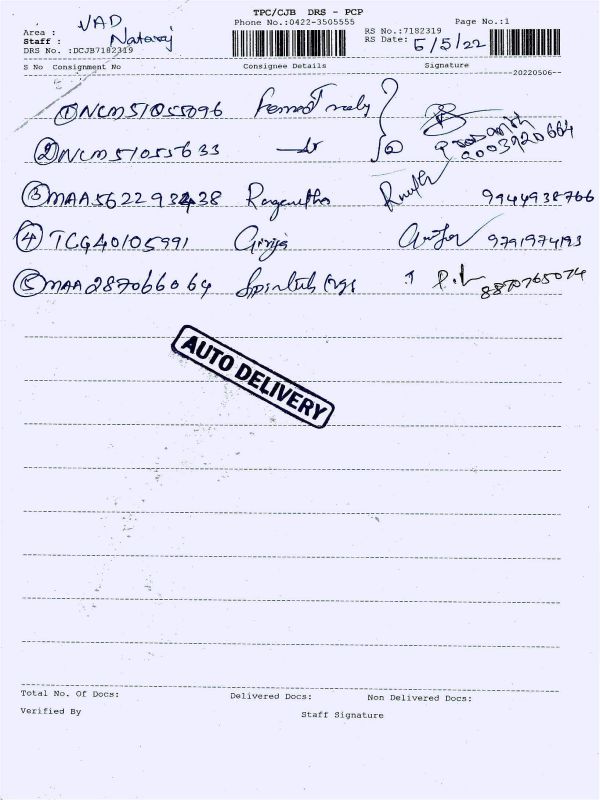 TPC/CJB DRS - PCP
Phone No.:0422-3505555 Page No.:1
Area : VAD RS No.:7182319
Staff : Nataraj RS Date: 5/5/22
DRS No. :DCJB7182319
S No Consignment No Consignee Details Signature
20220506--
① NCM51055096
② NCM51055633 9003920664
③ MAA562293438 9944938766
④ TCG40105991 Girija 9791974193
⑤ MAA287066064 8870765074
AUTO DELIVERY
Total No. Of Docs: Delivered Docs: Non Delivered Docs:
Verified By Staff Signature